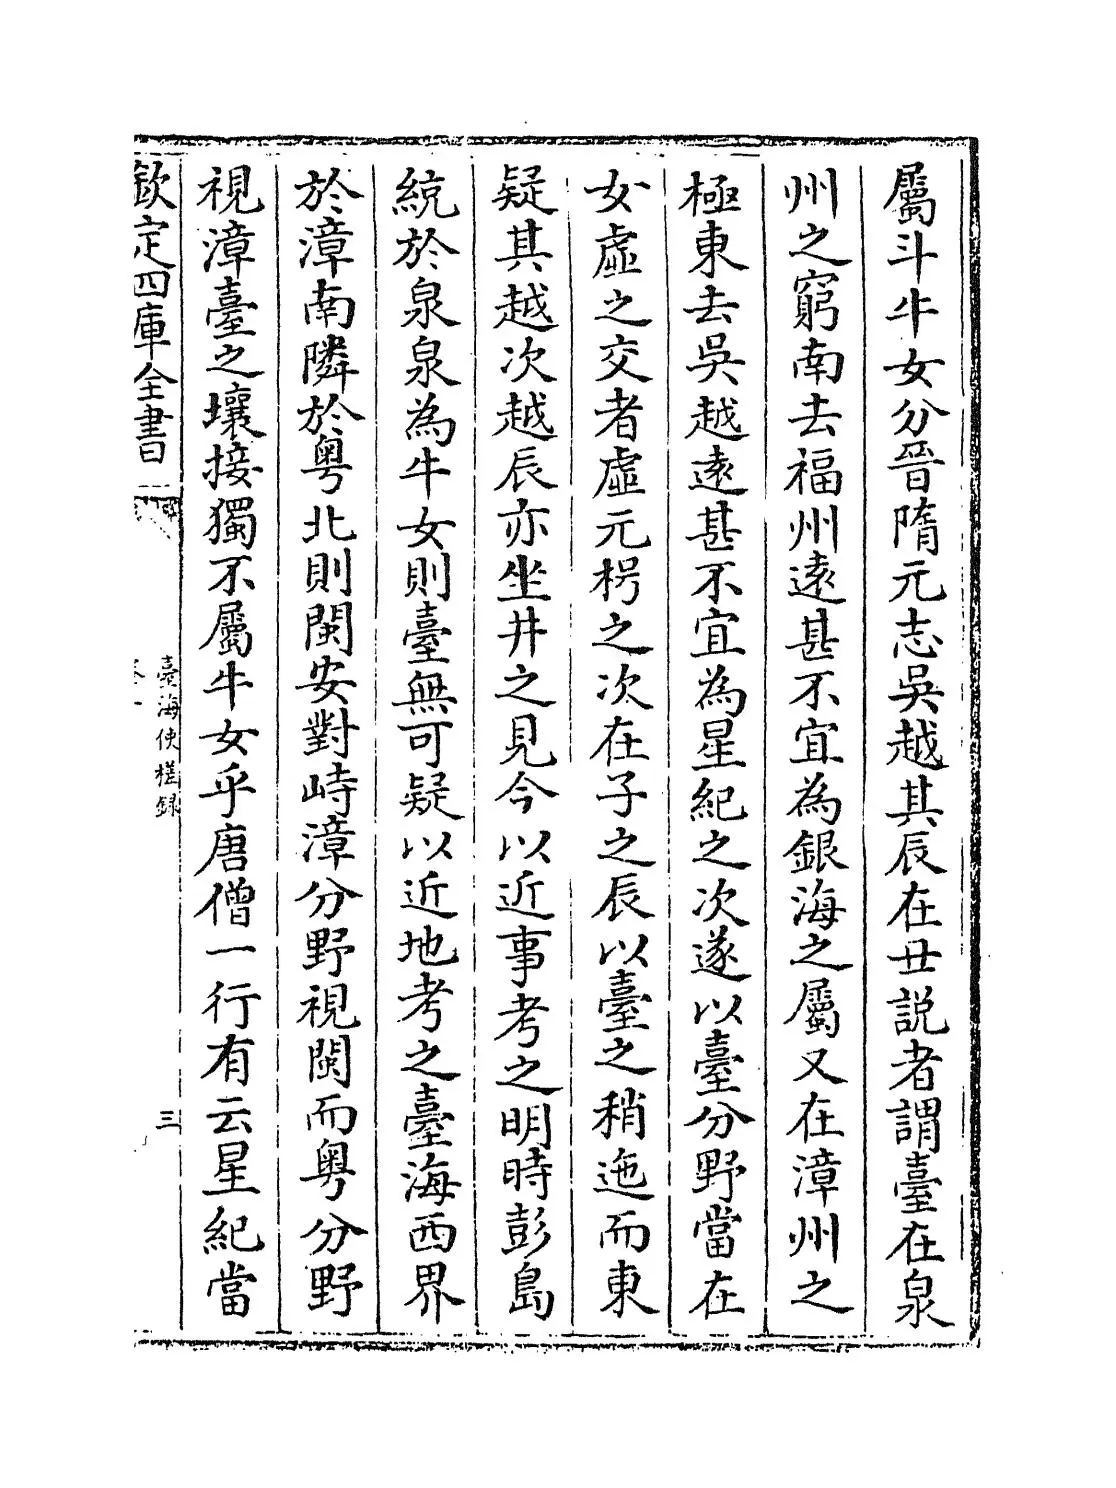 屬斗牛女分晉隋元志吳越其辰在丑説者謂臺在泉
州之窮南去福州遠甚不宜為銀海之屬又在漳州之
極東去吳越遠甚不宜為星紀之次遂以臺分野當在
女虛之交者虛元枵之次在子之辰以臺之稍迤而東
疑其越次越辰亦坐井之見今以近事考之明時彭島
統於泉泉為牛女則臺無可疑以近地考之臺海西界
於漳南隣於粵北則閩安對峙漳分野視閩而粵分野
視漳臺之壤接獨不屬牛女乎唐僧一行有云星紀當
欽定四庫全書
臺海使槎録
三